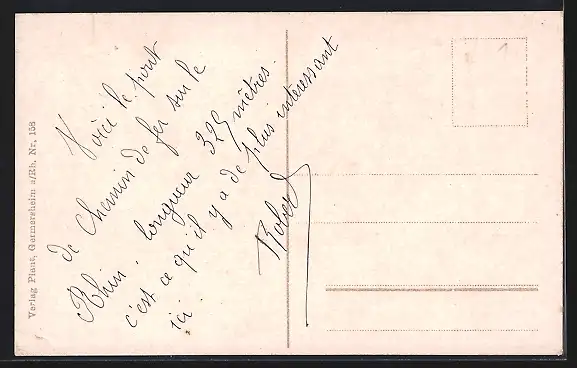 Verlag Plant, Germersheim a/Rh. Nr. 158
Voici le pont
de Chemin de fer sur le
Rhin. longueur 325 mètres.
c'est ce qu'il y a de plus intéressant
ici.
Robert
1